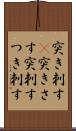 突き刺す
×突きさ
す突刺す
つき刺す